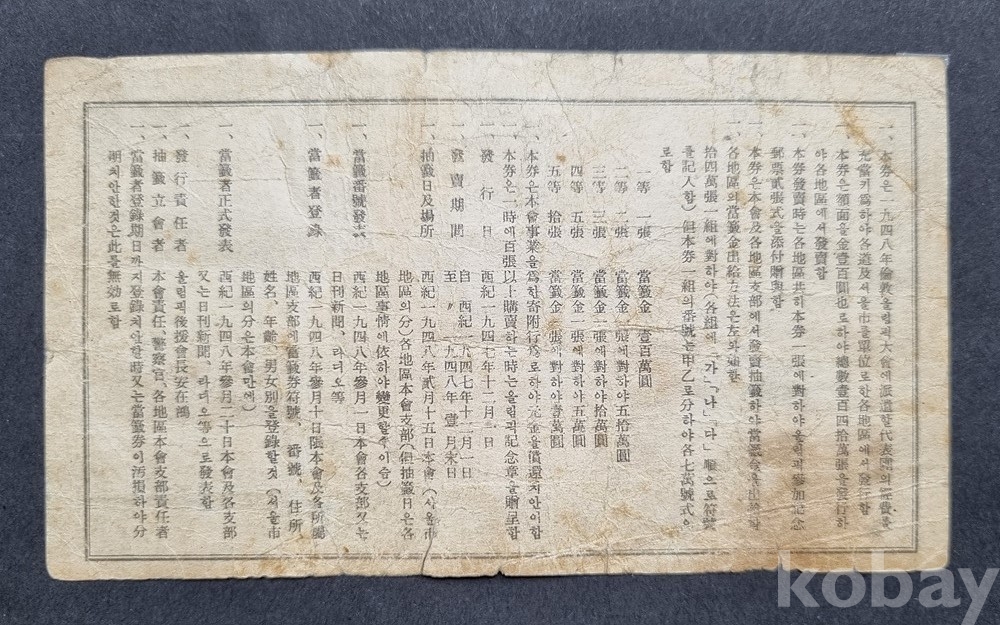 一、本券은一九四八年倫敦올림픽大會에派遣할代表團의經費를
充當키爲하야各道及서울市를單位로한各地區에서發行함
一、本券은額面을金壹百圓也로하야總數壹百四拾萬張을發行하
야各地區에서發賣함
一、本券發賣時는各地區共히本券一張에對하야올림픽參加記念
郵票貳張式을添付贈與함
一、本券은本會及各地區支部에서發賣抽籤하야當籤金을出給함
各地區의當籤金出給方法은左와如함
拾四萬張一組에對하야(各組에「가」「나」「다」順으로符號
를記入함)但本券一組의番號는甲乙로分하야各七萬號式으
로함
一等 一張 當籤金 壹百萬圓
二等 二張 當籤金一張에對하야五拾萬圓
三等 三張 當籤金一張에對하야拾萬圓
四等 五張 當籤金一張에對하야五萬圓
五等 拾張 當籤金一張에對하야壹萬圓
一、本券은本會事業을爲한寄附行爲로하야元金을償還치안이함
一、本券은一時에百張以上購賣하는時는올림픽記念章을贈呈함
一、發行日 西紀一九四七年十二月 日
一、發賣期間 自 西紀一九四七年十二月一日
至 〃 一九四八年壹月末日
一、抽籤日及場所 西紀一九四八年貳月十五日本會(서울市
地區의分)各地區本會支部(但抽籤日은各
地區事情에依하야變更할수이슴)
一、當籤番號發表 西紀一九四八年參月一日本會各支部又는
日刊新聞、라디오等
一、當籤者登錄 西紀一九四八年參月十日限本會及各所屬
地區支部에當籤券符號、番號、住所
姓名、年齡、男女別을登錄할것(서울市
地區의分은本會만에)
一、當籤者正式發表 西紀一九四八年參月二十日本會及各支部
又는日刊新聞、라디오等으로發表함
一、發行責任者 올림픽後援會長安在鴻
一、抽籤立會者 本會責任、警察官、各地區本會支部責任者
一、當籤者登錄期日까지登錄치안한時又는當籤券이汚損하야分
明치안한것은此를無效로함
kobay